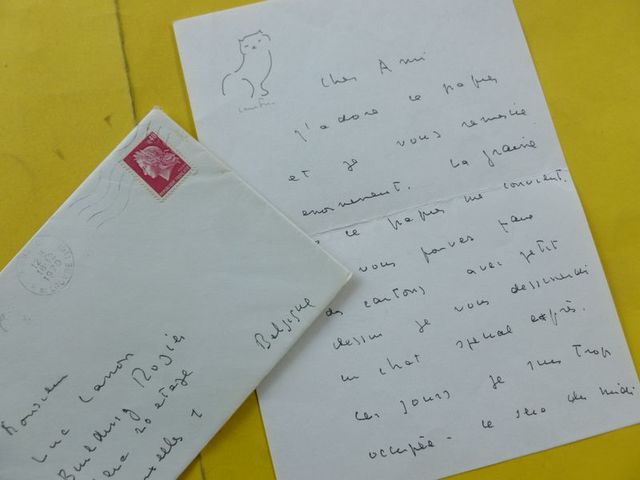 Cher Ami
J'adore ce papier
et je vous remercie
enormement. La graine
ce papier me convient.
vous pouvez faire
des cartons avec petit
dessin je vous dessinerai
un chat special exprès.
Ces jours je suis trop
occupée - Le du midi
Monsieur
Luc Canon
Building Rogier
20 etage
Belgique